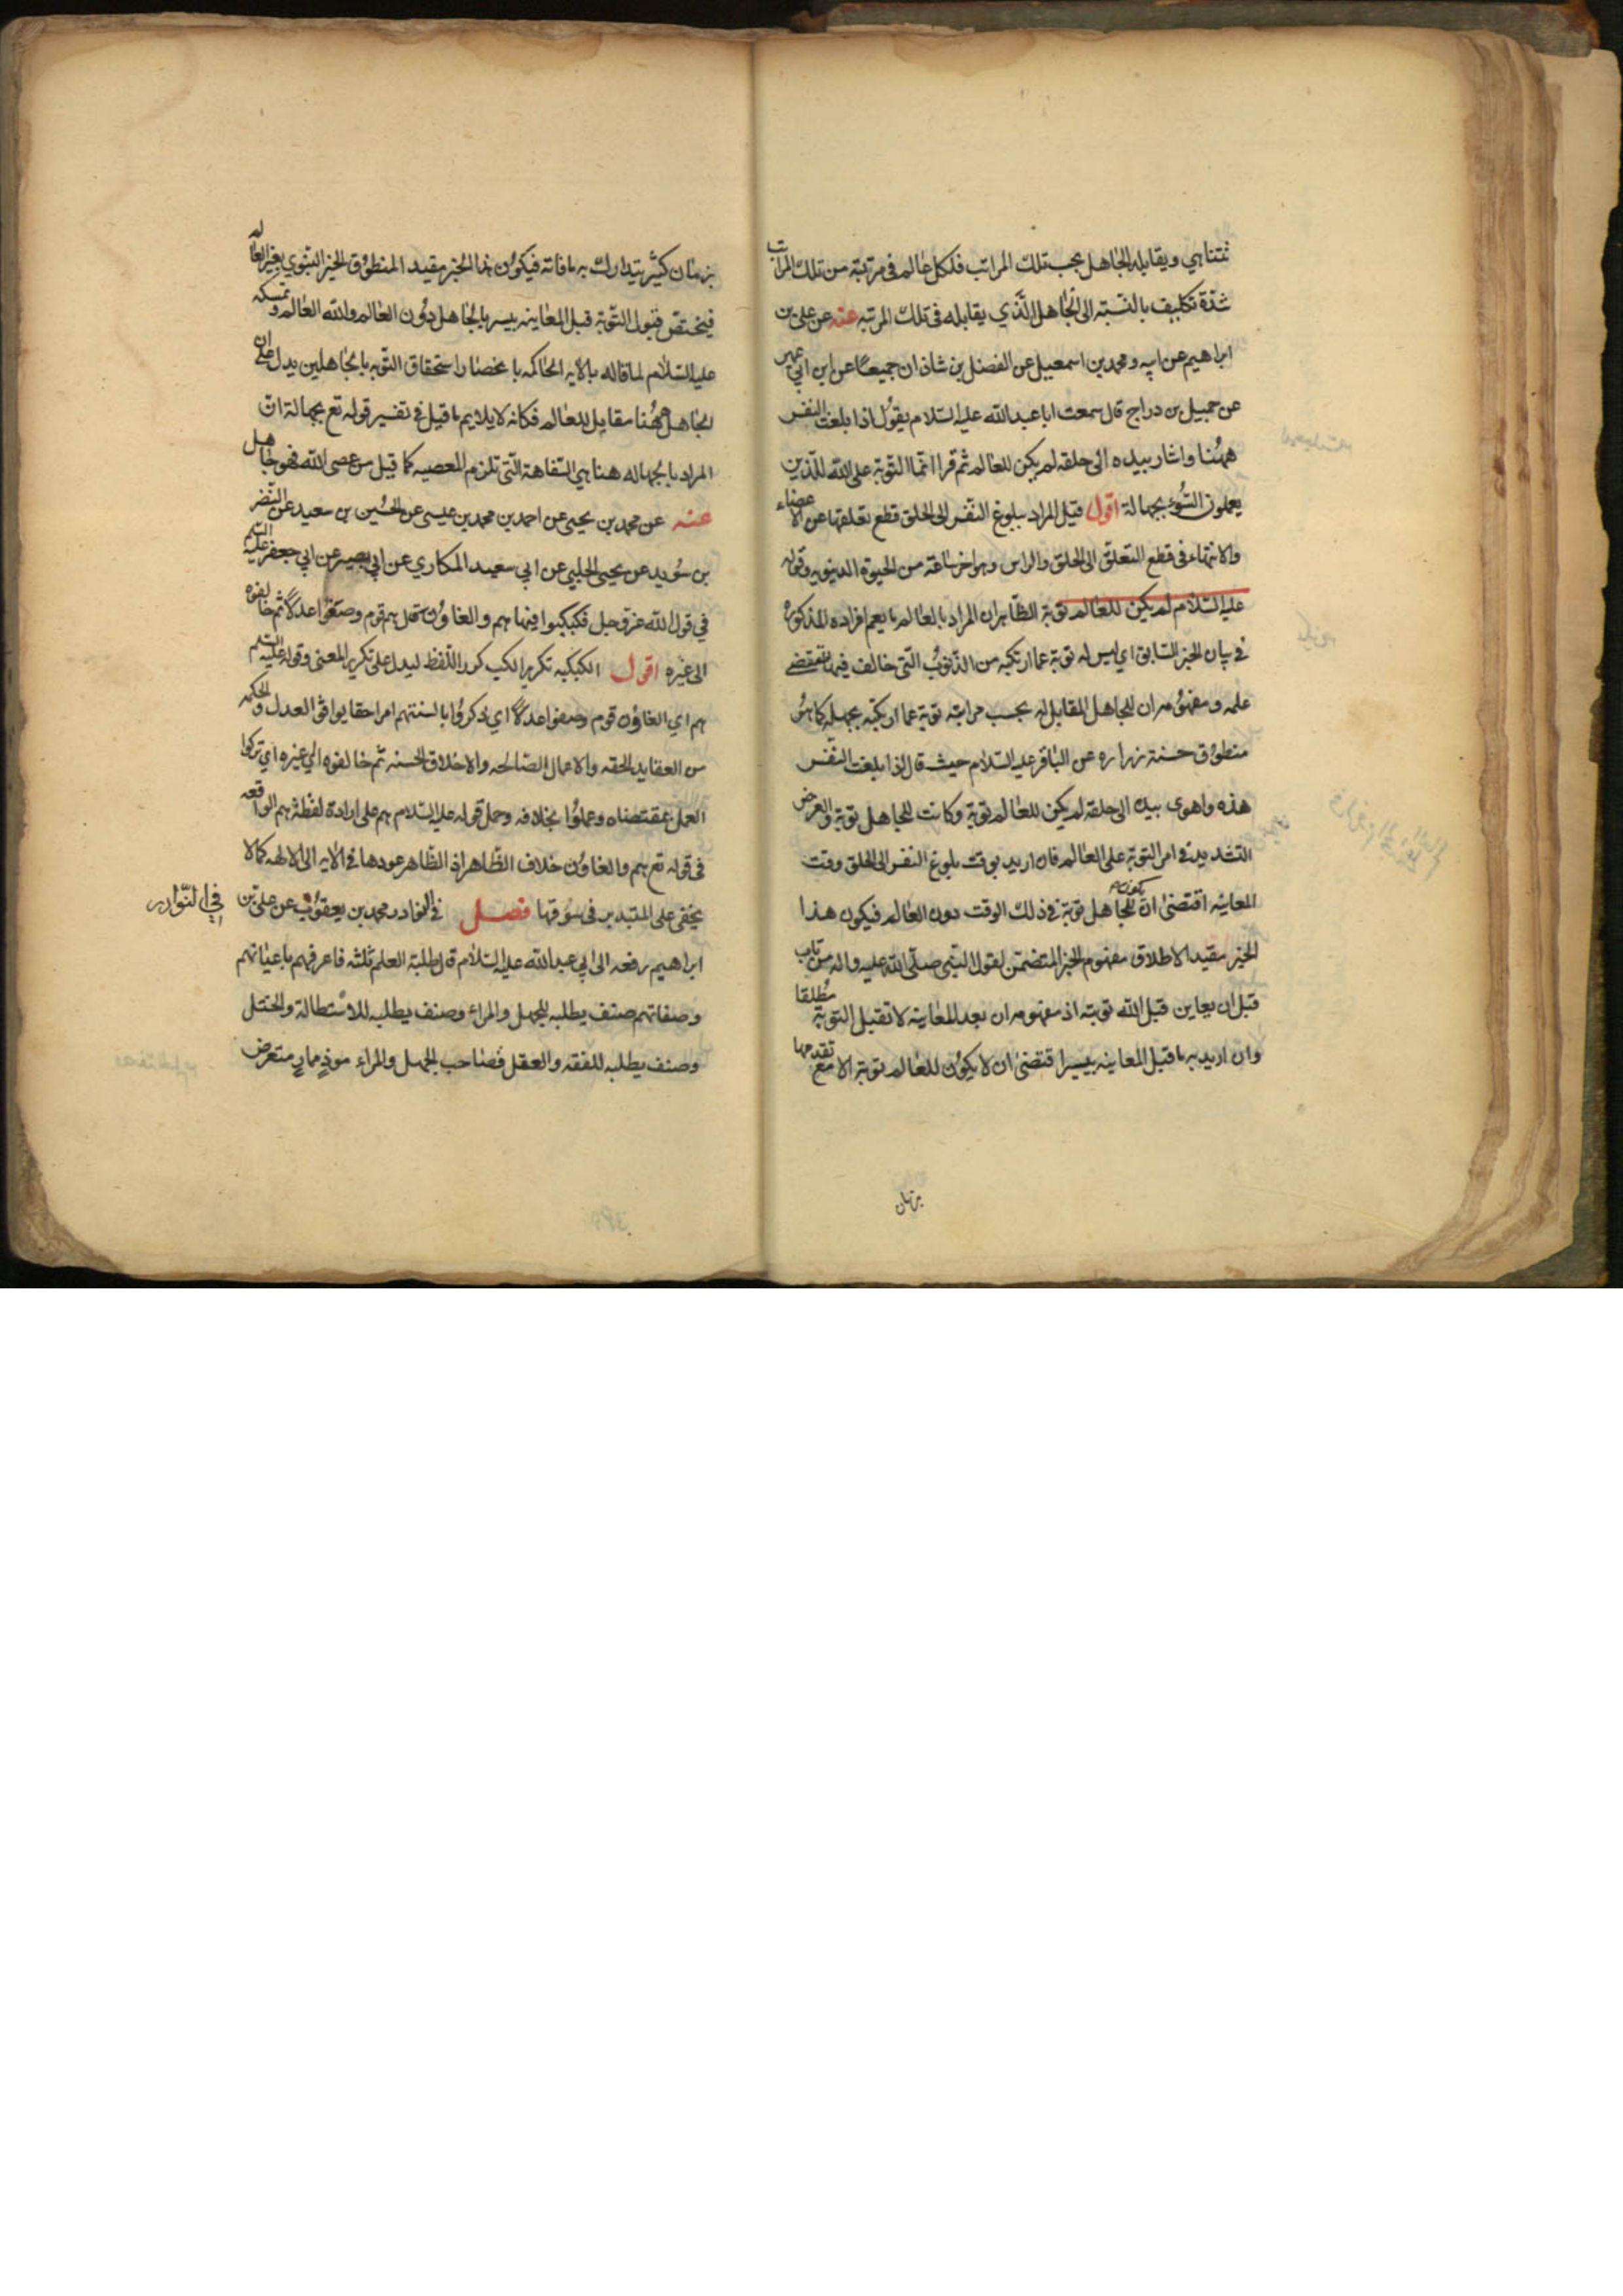 تتناهي ويقابله الجاهل بحسب تلك المراتب فلكل عالم في مرتبة من تلك المراتب
شدة تكليف بالنسبة الى الجاهل الذي يقابله في تلك المرتبه عنه عن علي بن
ابراهيم عن ابيه ومحمد بن اسمعيل عن الفضل بن شاذان جميعًا عن ابن ابي عمير
عن جميل بن دراج قال سمعت ابا عبد الله عليه السلام يقول اذا بلغت النفس
ههنا واشار بيده الى حلقه لم يكن للعالم ثم قرا انما التوبة على الله للذين
يعملون السوء بجهالة اقول قيل المراد ببلوغ النفس الى الحلق قطع تعلقها عن الاعضاء
والانتهاء في قطع التعلق الى الحلق والراس وهو اخر ساعة من الحيوة الدنيويه وقوله
عليه السلام لم يكن للعالم توبة الظاهر ان المراد بالعالم ما يعم افراده المذكورة
في بيان الخبر السابق اي ليس له توبة عما ارتكبه من الذنوب التي خالف فيها مقتضى
علمه ومفهومه ان للجاهل المقابل له بحسب مراتبه توبة عما ارتكبه بجهله كما هو
منطوق حسنة زراره عن الباقر عليه السلام حيث قال اذا بلغت النفس
هذه واهوى بيده الى حلقه لم يكن للعالم توبة وكانت للجاهل توبة والغرض
التشديد في امر التوبة على العالم فان اريد بوقت بلوغ النفس الى الحلق وقت
المعاينه اقتضى ان يكون للجاهل توبة في ذلك الوقت دون العالم فيكون هذا
الخبر مقيدا لاطلاق مفهوم الخبر المتضمن لقول النبي صلى الله عليه واله من تاب
قبل ان يعاين قبل الله توبته اذ مفهومه ان بعد المعاينه لا تقبل التوبة مطلقا
وان اريد به ما قبل المعاينه بيسير اقتضى ان لا يكون للعالم توبة الا مع تقدمها
بزمان
بزمان كثير يتدارك به ما فاته فيكون هذا الخبر مقيد المنطوق الخبر النبوي بغير العالم
فيختص قبول التوبة قبل المعاينه بيسير بالجاهل دون العالم والله العالم وتمسكه
عليه السلام لما قاله بالايه الحاكمه باخصار استحقاق التوبه بالجاهلين يدل على ان
الجاهل ههنا مقابل للعالم فكانه لا يلايم ما قيل في تفسير قوله تع بجهالة ان
المراد بالجهاله هنا هي السفاهة التي تلزم المعصيه كما قيل من عصى الله فهو جاهل
عنه عن محمد بن يحيى عن احمد بن محمد بن عيسى عن الحسين بن سعيد عن النضر
بن سويد عن يحيى الحلبي عن ابي سعيد المكاري عن ابي بصير عن ابي جعفر عليه السلم
في قول الله عز وجل فكبكبوا فيها هم والغاوون قال هم قوم وصفوا عدلًا ثم خالفوه
الى غيره اقول الكبكبه تكرير الكب كرر اللفظ ليدل على تكرير المعنى وقوله عليه السلم
هم اي الغاوون قوم وصفوا عدلًا اي ذكروا بالسنتهم امرا حقا يوافق العدل والحكمه
من العقايد الحقه والاعمال الصالحه والاخلاق الحسنه ثم خالفوه الى غيره اي تركوا
العمل بمقتضاه وعملوا بخلافه وحمل قوله عليه السلام هم على ارادة لفظة هم الواقعه
في قوله تع هم والغاوون خلاف الظاهر اذ الظاهر عودها في الايه الى الالهه كما لا
يخفى على المتدبر في سوقها فصل في النوادر محمد بن يعقوب عن علي بن
في النوادر
ابراهيم رفعه الى ابي عبد الله عليه السلام قال طلبة العلم ثلثه فاعرفهم باعيانهم
وصفاتهم صنف يطلبه للجهل والمراء وصنف يطلبه للاستطالة والختل
وصنف يطلبه للفقه والعقل فصاحب الجهل والمراء موذٍ ممارٍ متعرض